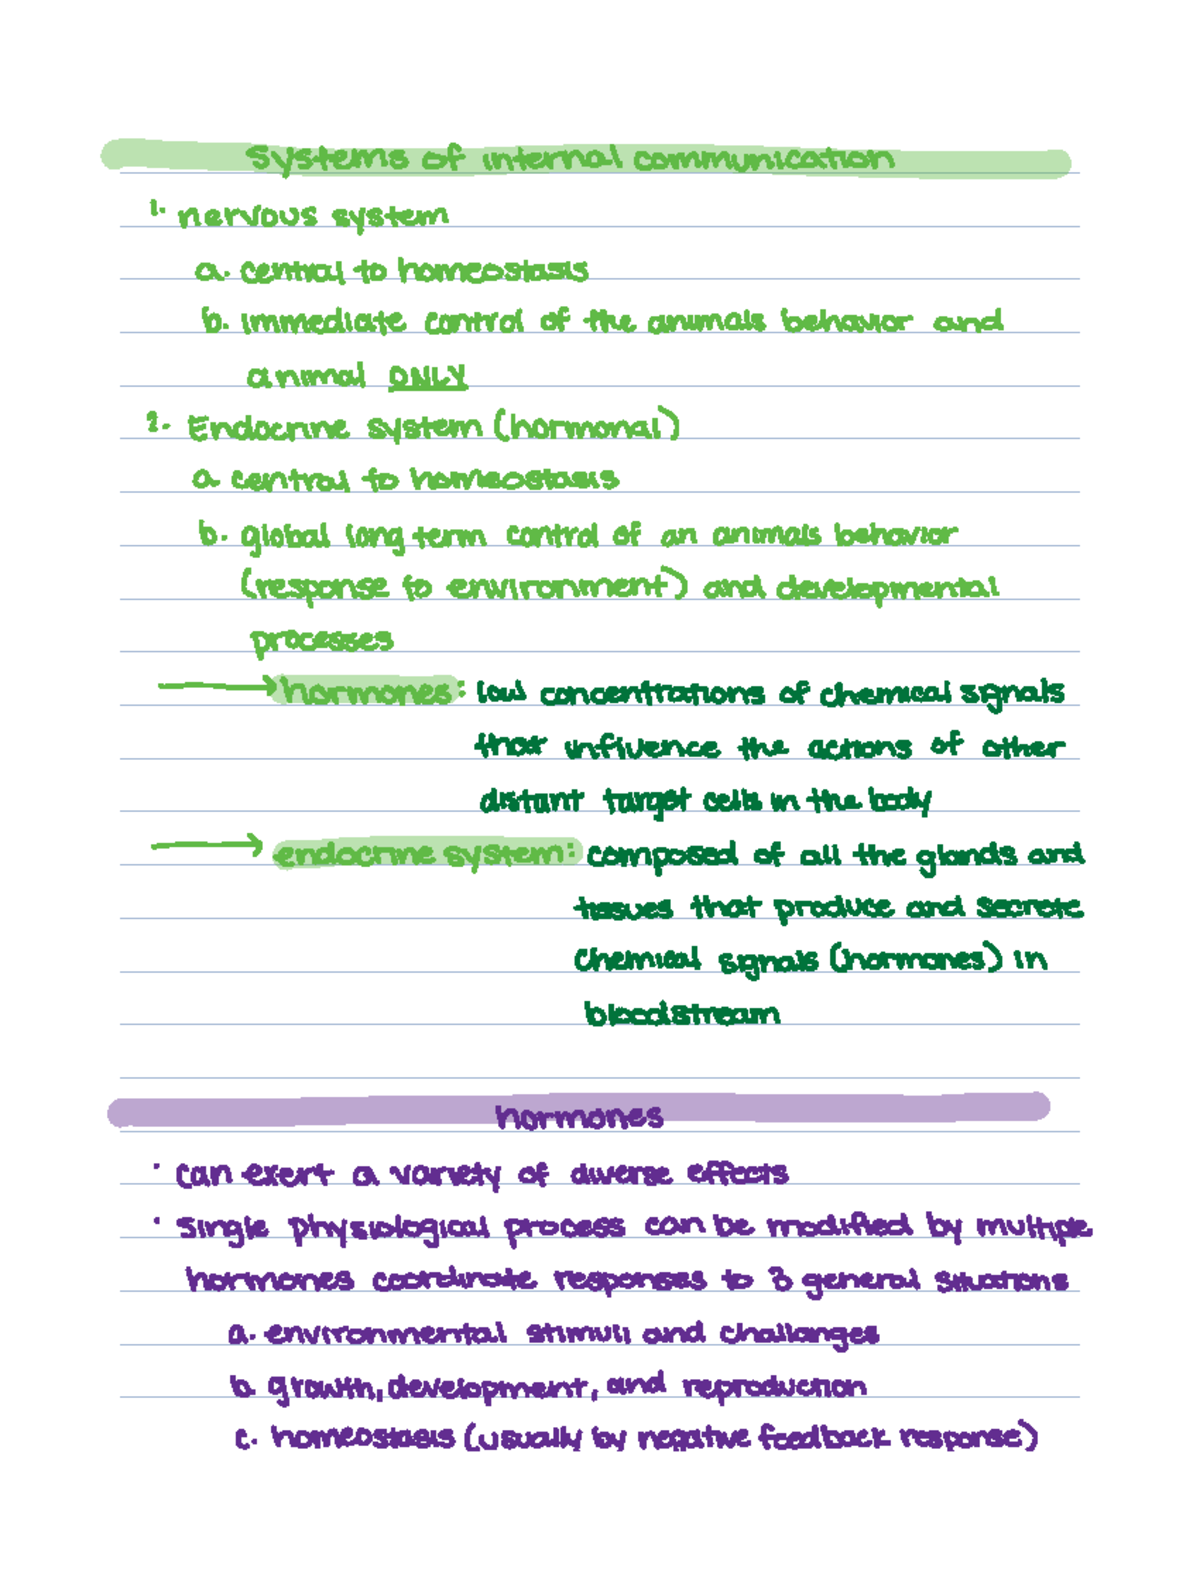 systems of internal communication
1. nervous system
a. central to homeostasis
b. immediate control of the animals behavior and
animal ONLY
2. Endocrine system (hormonal)
a central to homeostasis
b. global long term control of an animals behavior
(response to environment) and developmental
processes
hormones: low concentrations of chemical signals
that influence the actions of other
distant target cells in the body
endocrine system: composed of all the glands and
tissues that produce and secrete
chemical signals (hormones) in
bloodstream
hormones
· can exert a variety of diverse effects
· single physiological process can be modified by multiple
hormones coordinate responses to 3 general situations
a. environmental stimuli and challanges
b. growth, development, and reproduction
c. homeostasis (usually by negative feedback response)